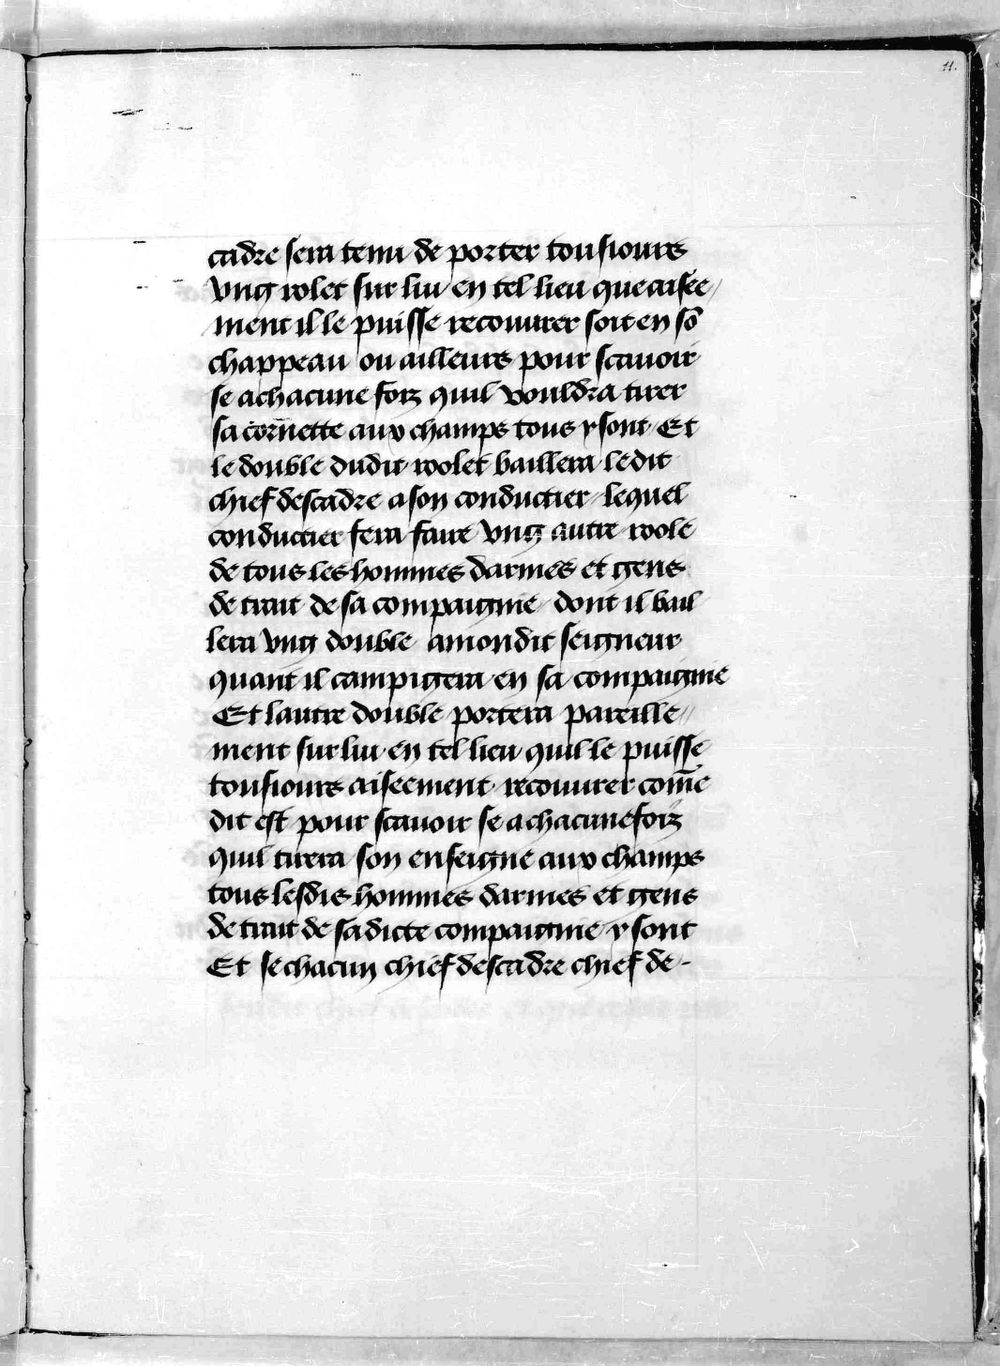 11.
cadre sera tenu de porter tousiours
vng rolet sur lui en tel lieu que aisee/
ment il le puisse recouurer soit en sō
chappeau ou ailleurs pour scauoir
se a chacune foiz quil vouldra tirer
sa cornette aux champs tous y sont Et
le double dudit roolet baillera ledit
chief descadre a son conductier lequel
conductier fera faire vng autre roole
de tous les hommes darmes et gens
de trait de sa compaignie dont il bail
lera vng double a mondit seigneur
quant il campigera en sa compaignie
Et lautre double portera pareille//
ment sur lui en tel lieu quil le puisse
tousiours aiseement recouurer com̄e
dit est pour scauoir se a chacune foiz
quil tirera son enseigne aux champs
tous lesdis hommes darmes et gens
de trait de sa dicte compaignie y sont
Et se chacun chief descadre chief de -